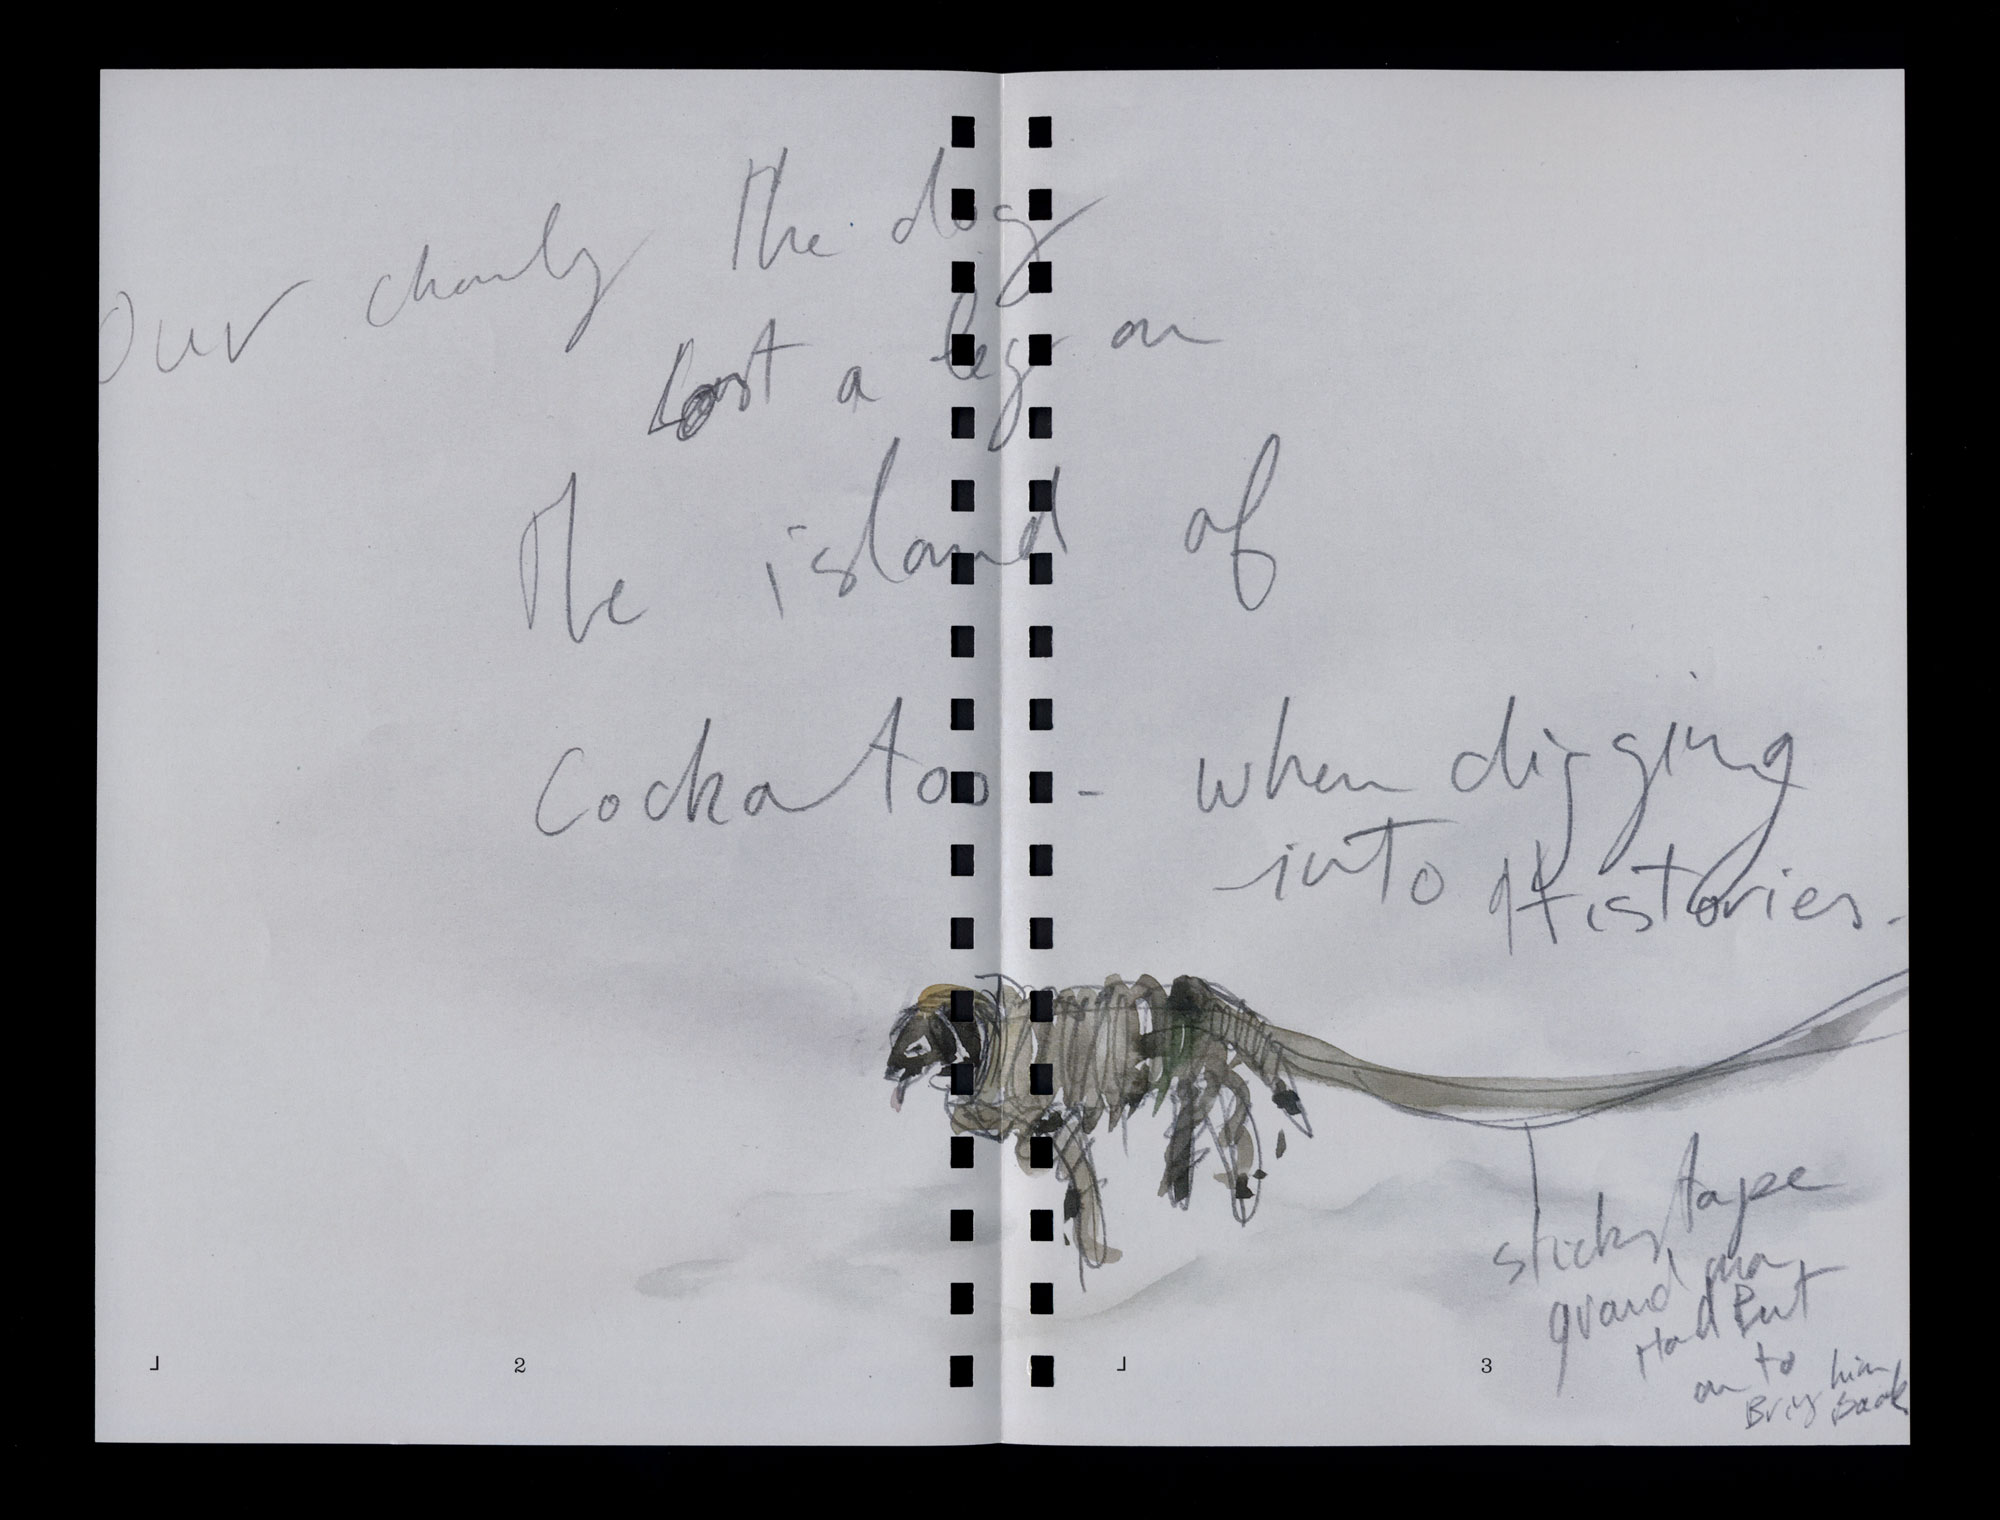 Our charly the dog
Lost a leg on
the island of
Cockatoo - when digging
into Histories.
sticky tape
grand ma
Had Put
on to
Bring him
Back
2
3